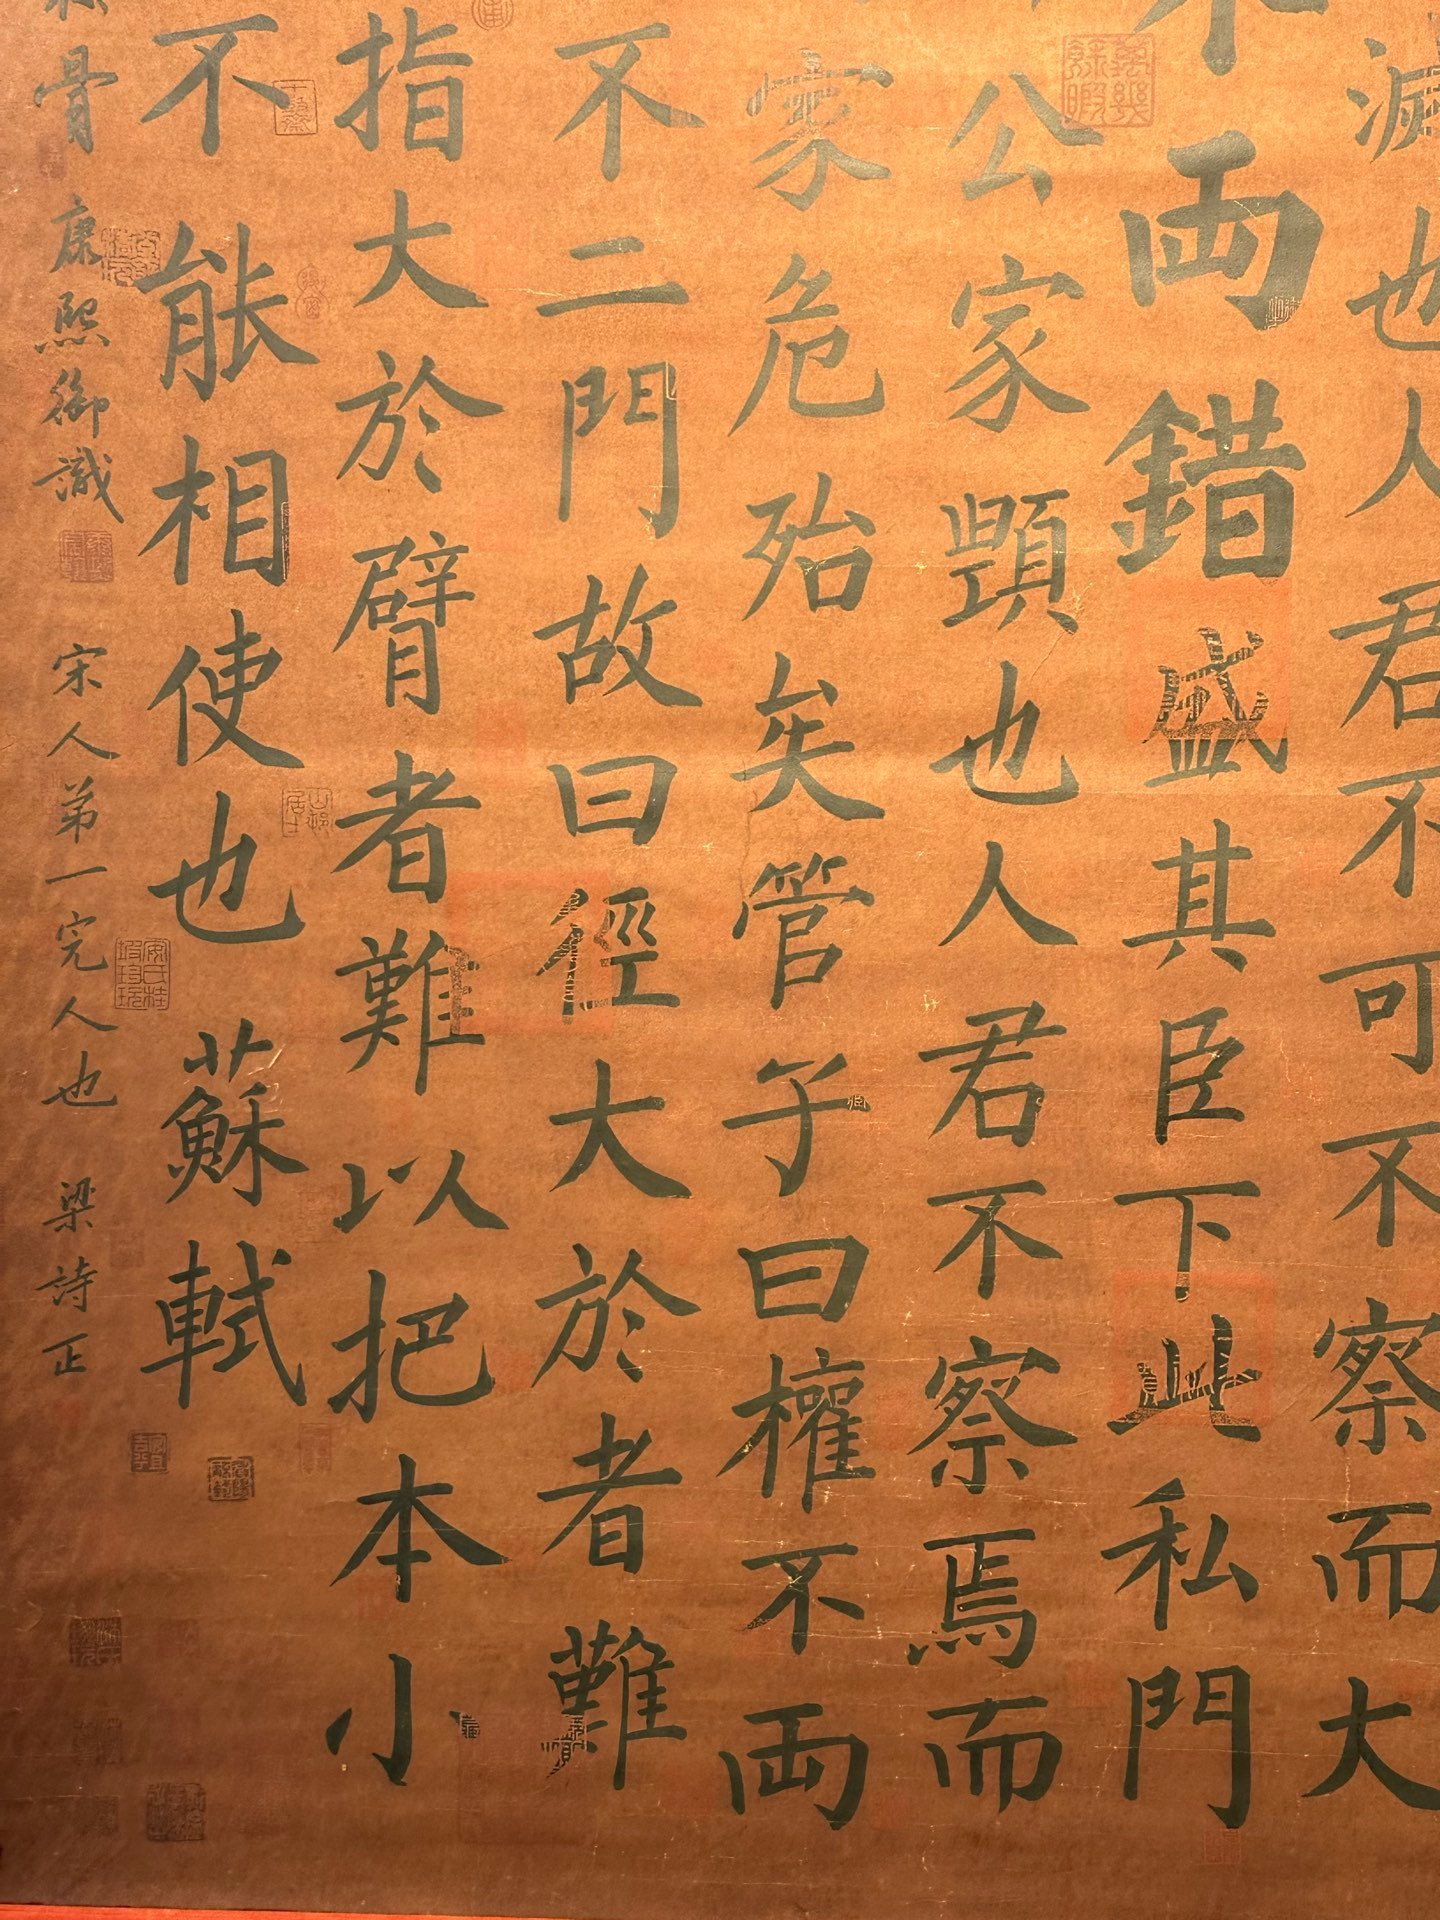 滅也人君不可不察而大
両錯盛其臣下此私門
公家顗也人君不察焉而
家危殆矣管子曰權不両
不二門故曰徑大於者難
指大於臂者難以把本小
不能相使也 蘇軾
骨 康熙御識 宋人弟一完人也 梁詩正